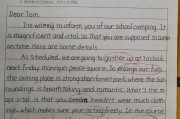 Dear Tom,
I'm writing to inform you of our school camping. It
is magnificent and vital, so that you are supposed to come
on time. Here are some details.
As scheduled, we are going to gather up at 7 o'clock
next Friday morning in peace square. To enlarge our fun,
the coming place is zhongshan forest park where the
roundings is breath taking and romantic. What's the m
our vital is that you needn't wear much cloth
ings, which makes sure your activity freely. In the